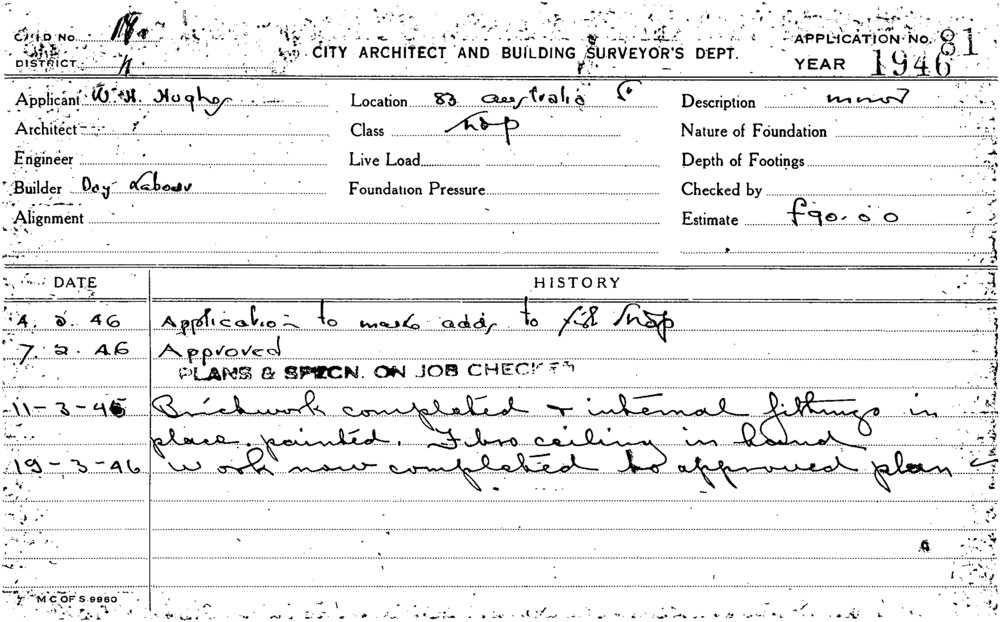 CITY ARCHITECT AND BUILDING SURVEYOR'S DEPT.
APPLICATION No. 81
DISTRICT
YEAR 1946
Applicant W. H. Hughes
Location 83 Australia St
Description minor
Architect
Class Shop
Nature of Foundation
Engineer
Live Load
Depth of Footings
Builder Day Labour
Foundation Pressure
Checked by
Alignment
Estimate £90.0.0
DATE HISTORY
4. 2. 46 Application to make adds to fish shop
7. 2. 46 Approved
PLANS & SPECN. ON JOB CHECKED
11-3-46 Brickwork completed & internal fittings in
place, painted. Fibro ceiling in hand
19-3-46 Work now completed to approved plan
M C OF S 9980